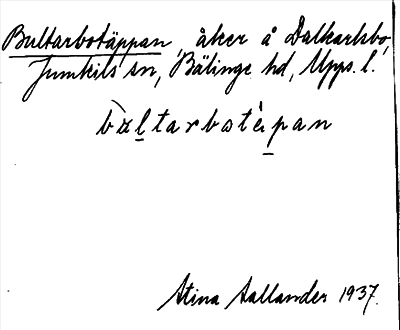 Bultarbotäppan, åker å Dalkarlsbo,
Jumkils sn, Bälinge hd, Upps. l.
bu̇ltarbotèpan
Stina Sallander 1937.